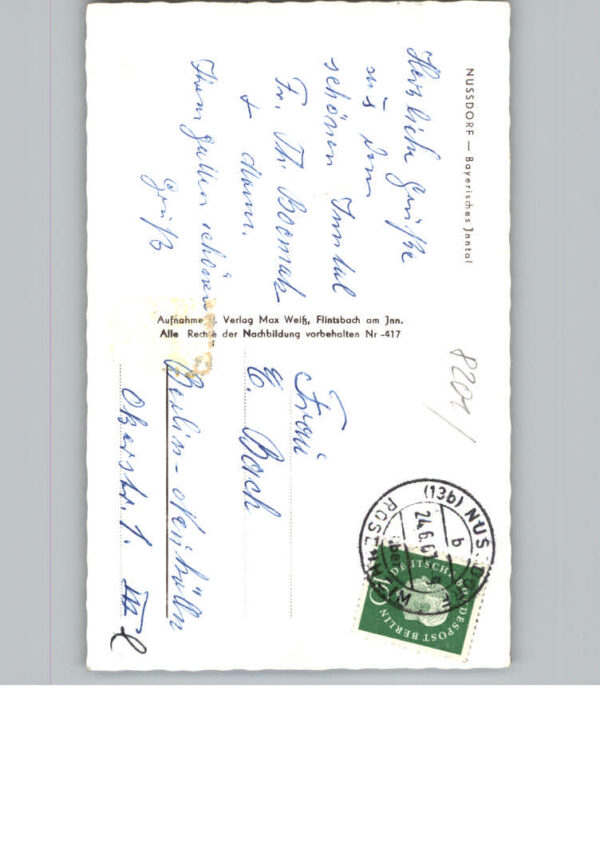 NUSSDORF — Bayerisches Jnntal
Herzliche Grüße
aus dem
schönen Inntal
Fr. Th.
+ Mann.
Ihrem schönen
Gruß
Aufnahme u. Verlag Max Weiß, Flintsbach am Jnn.
Alle Rechte der Nachbildung vorbehalten Nr -417
8201/
Frau
E.
Berlin-Neukölln
Okerstr. 1. III l
(13b) NUSSDORF
b
24.6.6
ROSENHEIM
DEUTSCHE BUNDESPOST BERLIN